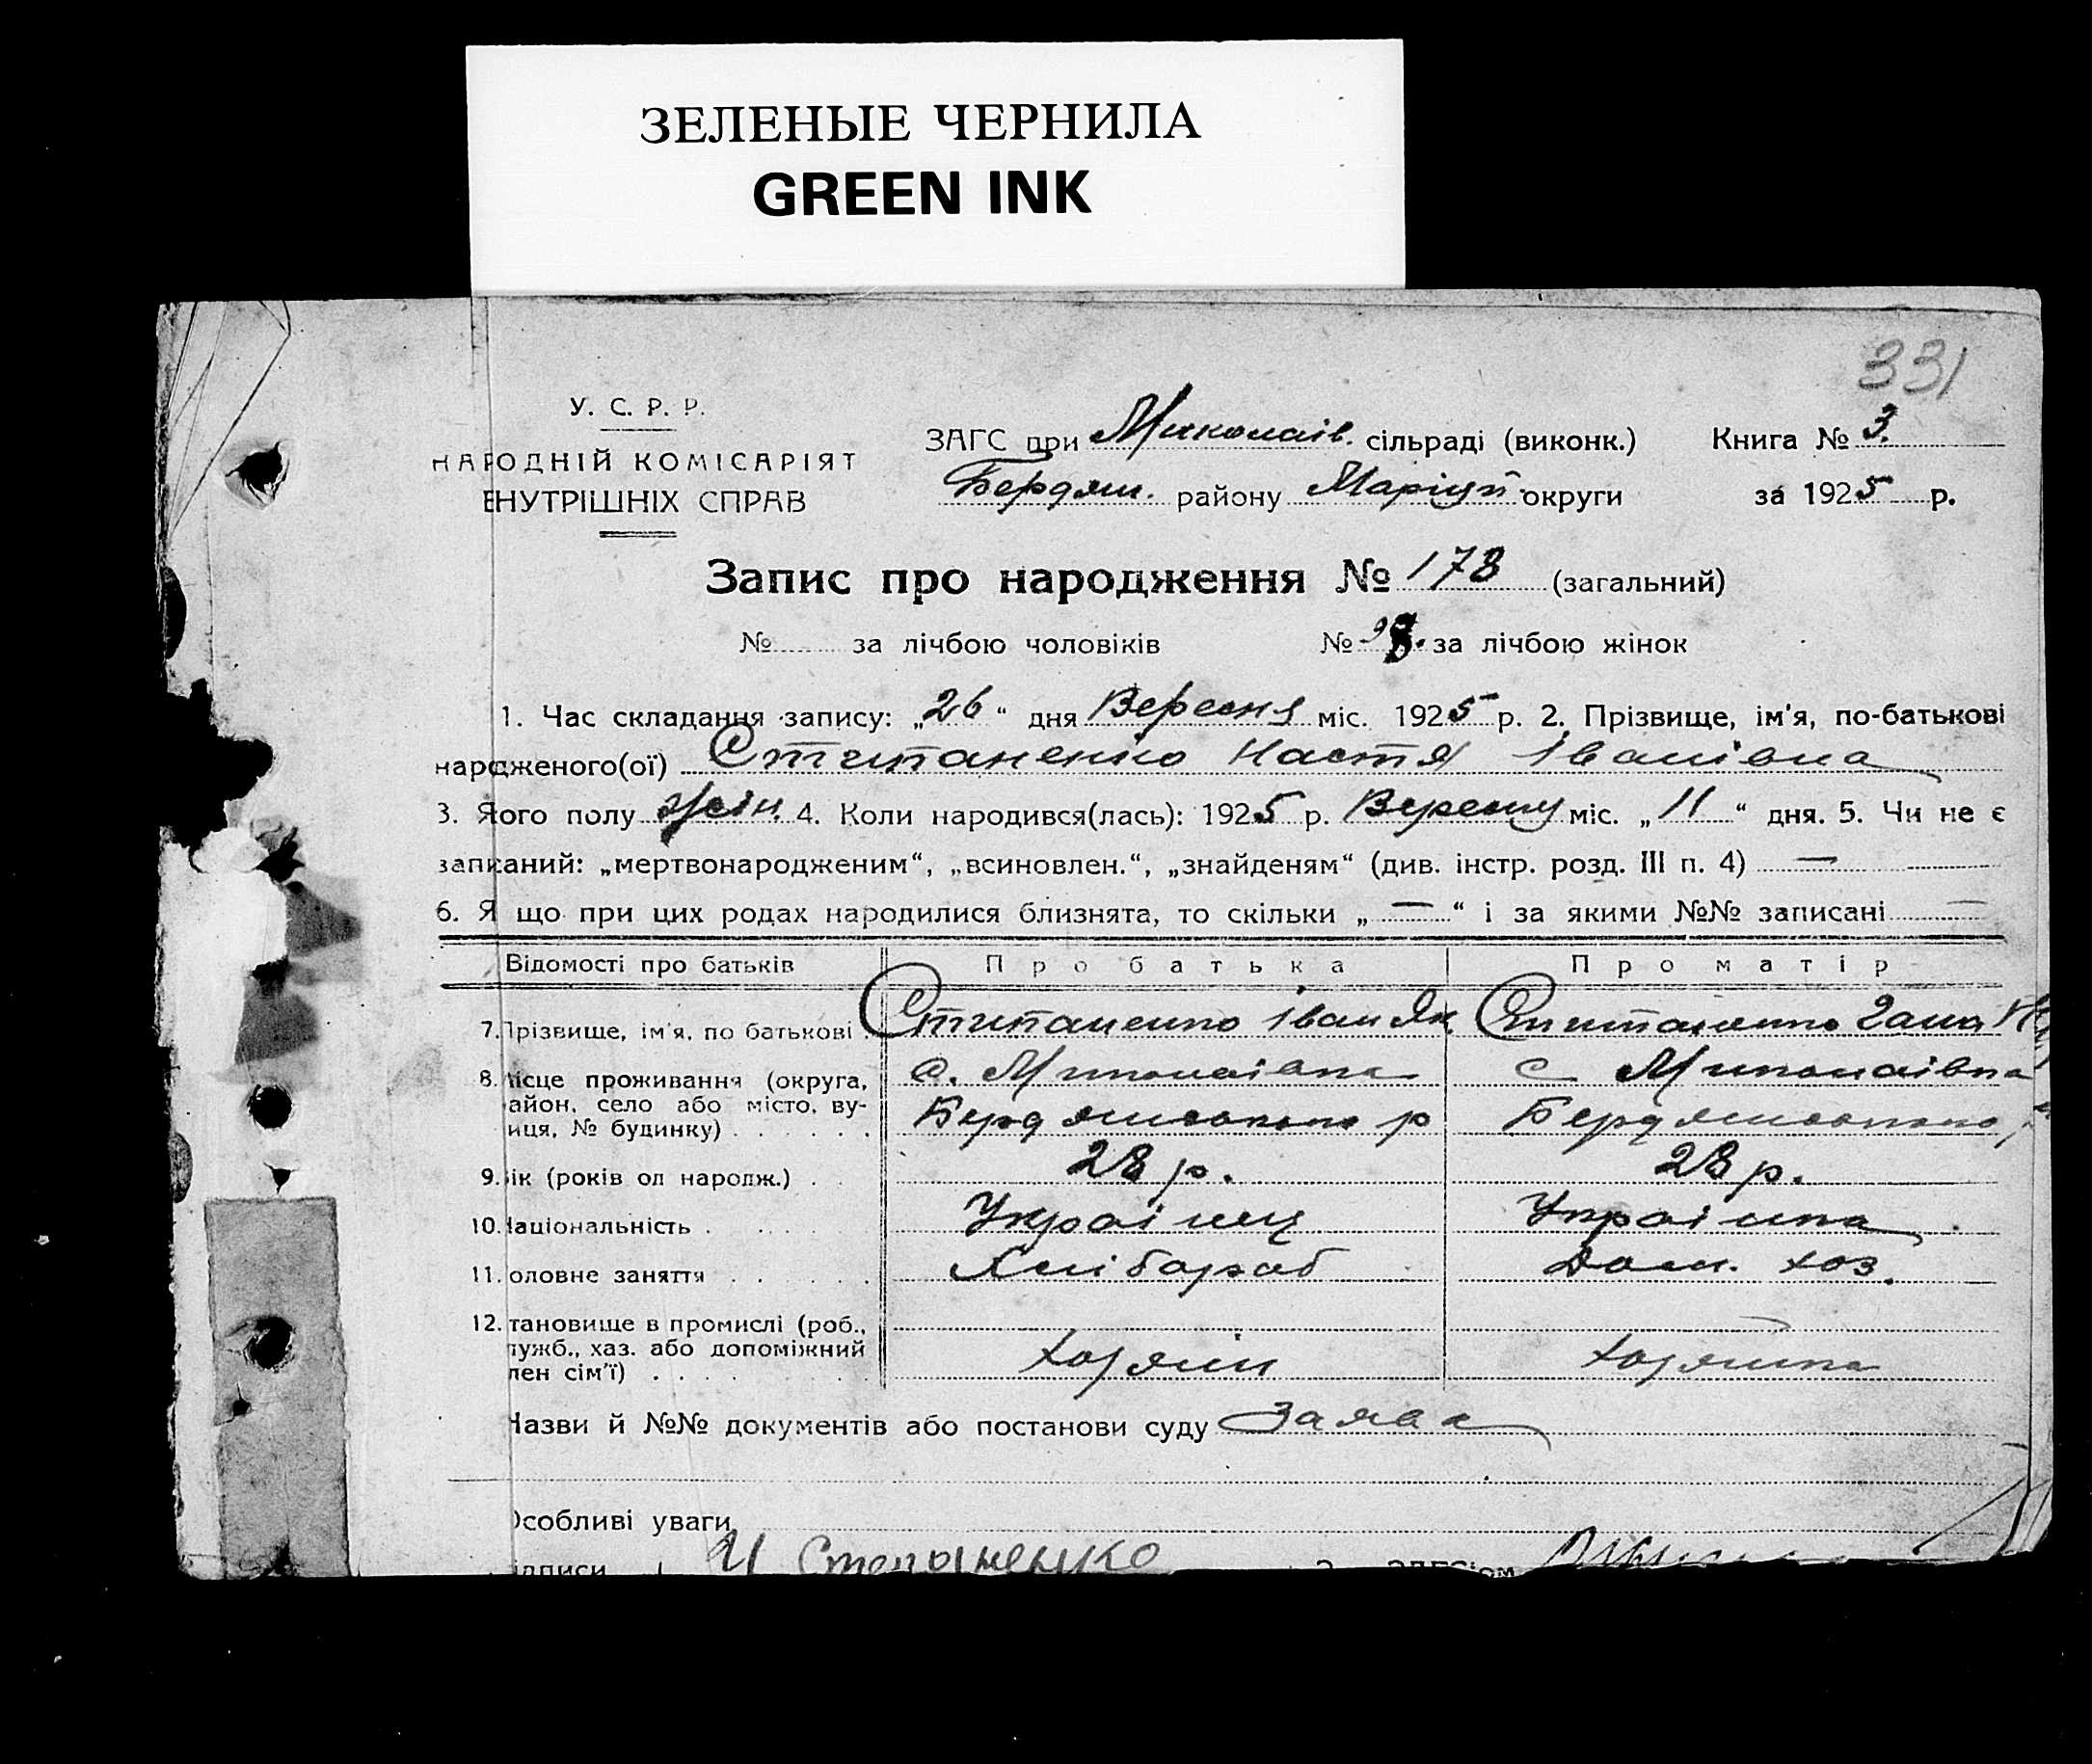 ЗЕЛЕНЫЕ ЧЕРНИЛА
GREEN INK
331
У. С. Р. Р.
НАРОДНІЙ КОМІСАРІЯТ
ВНУТРІШНІХ СПРАВ
ЗАГС при Миколаїв. сільраді (виконк.) Книга № 3.
Бердян. району Маріуп. округи за 1925 р.
Запис про народження № 178 (загальний)
№ за лічбою чоловіків № 98. за лічбою жінок
1. Час складання запису: „26“ дня Вересня міс. 1925 р. 2. Прізвище, ім'я, по-батькові
народженого(ої) Стипаненко Настя Іванівна
3. Його полу жін. 4. Коли народився(лась): 1925 р. Вересню міс. „11“ дня. 5. Чи не є
записаний: „мертвонародженим“, „всиновлен.“, „знайденям“ (див. інстр. розд. III п. 4) —
6. Я що при цих родах народилися близнята, то скільки „—“ і за якими №№ записані —
Відомості про батьків Про батька Про матір
7. Прізвище, ім'я, по батькові . Стипаненко Іван Як. Стипаненко Гана
8. місце проживання (округа, с. Миколаівка с Миколаівка
район, село або місто, ву-
лиця, № будинку) . . . . . . Бердянського р Бердянського
9. Вік (років од народж.) . . 28 р. 28 р.
10. Національність . . . . Україиец Украінка
11. оловне заняття . . . . Хлібороб Дом. хоз.
12. тановище в промислі (роб.,
служб., хаз. або допоміжний
лен сім'ї) . . . . . . Хозяїн Хозяйка
Назви й №№ документів або постанови суду Заява
Особливі уваги
ідписи И Степаненко